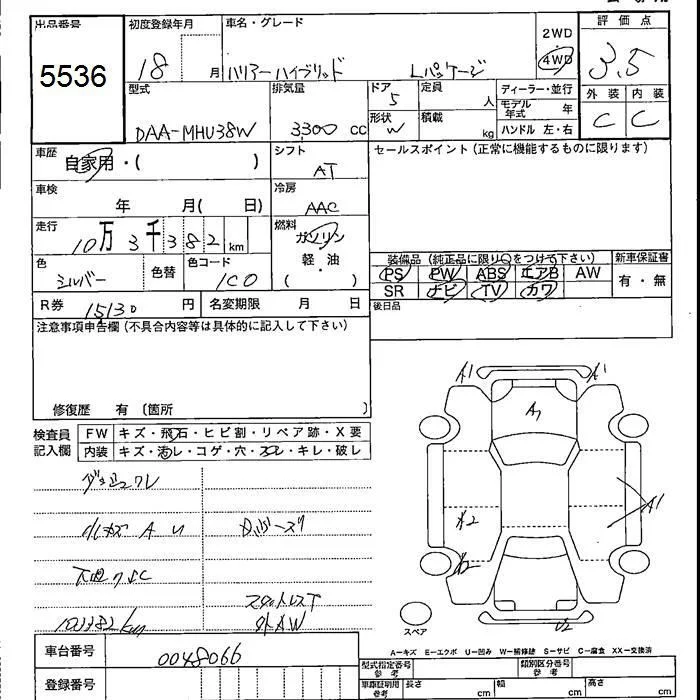 出品番号
5536
初度登録年月
18 月
車名・グレード
ハリアーハイブリッド Lパッケージ
2WD
4WD
評価点
3.5
外装 内装
C C
型式
DAA-MHU38W
排気量
3300 cc
ドア
5
形状
W
定員 人
積載 kg
ディーラー・並行
モデル年式 年
ハンドル 左・右
車歴
自家用・( )
シフト
AT
車検
年 月( 日)
冷房
AAC
走行
10万3千382km
燃料
ガソリン
軽・油
( )
色
シルバー
色替
色コード
1C0
R券 15130 円
名変期限 月 日
セールスポイント(正常に機能するものに限ります)
装備品(純正品に限り○をつけて下さい)
PS PW ABS エアB AW
SR ナビ TV カワ
新車保証書
有・無
後日品
注意事項申告欄(不具合内容等は具体的に記入して下さい)
修復歴 有 (箇所 )
検査員記入欄
FW キズ・飛石・ヒビ割・リペア跡・X要
内装 キズ・汚レ・コゲ・穴・スレ・キレ・破レ
小キズ A U
スタットレスT
外AW
103382km
A1 A1
A1
A2
A1
U2
スペア
A-キズ E-エクボ U-凹み W-補修跡 S-サビ C-腐食 XX-交換済
車台番号
0048066
登録番号
型式指定番号 参考
類別区分番号 参考
車庫証明用 参考 長さ cm 幅 cm 高さ cm